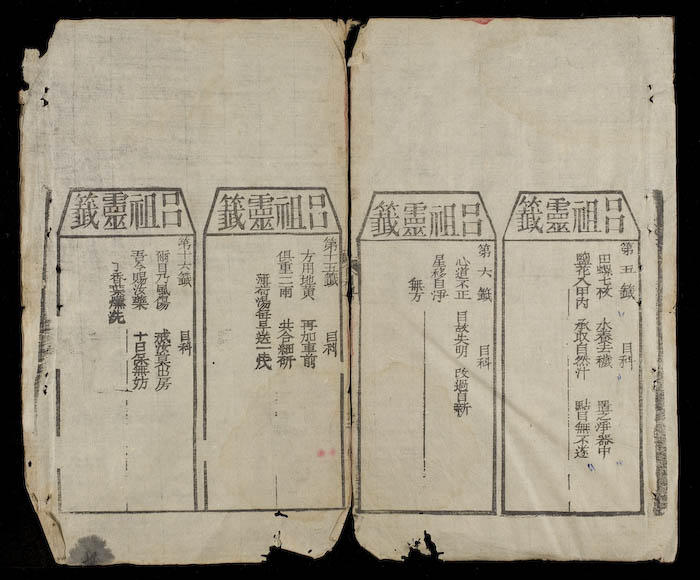 呂祖靈籤
第五籤 目科
田螺七枚 水養去穢 置之淨器中
鹽花入甲內 承取自然汁 點目無不遂
呂祖靈籤
第六籤 目科
心道不正 目故失明 改過自新
星移自淨 無方
呂祖靈籤
第十五籤 目科
方用地黃 再加車前
俱重二兩 共合細研
薄荷湯每早送一戔
呂祖靈籤
第十六籤 目科
爾目乃風傷 戒汝莫出房
吾今賜汝藥 十日保無妨
丁香葉 洗